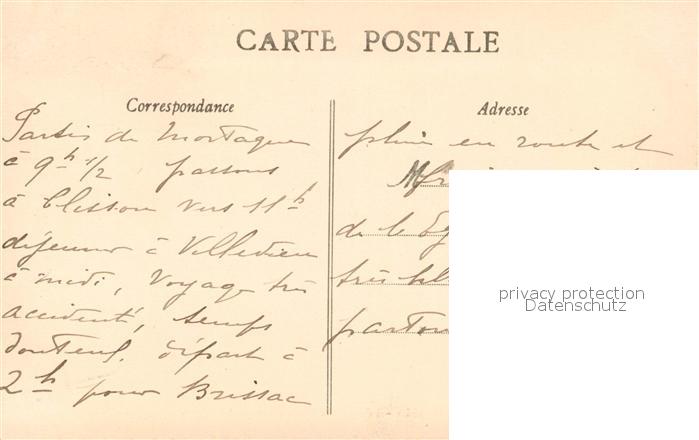 CARTE POSTALE
Correspondance
Partis de Mortagne
à 9h 1/2 passons
à Clisson vers 11h
déjeuner à Villedieu
à midi, Voyage très
accidenté, temps
douteux, départ à
2h pour Brissac
Adresse
pluie en route et
de la
très
partou
privacy protection
Datenschutz